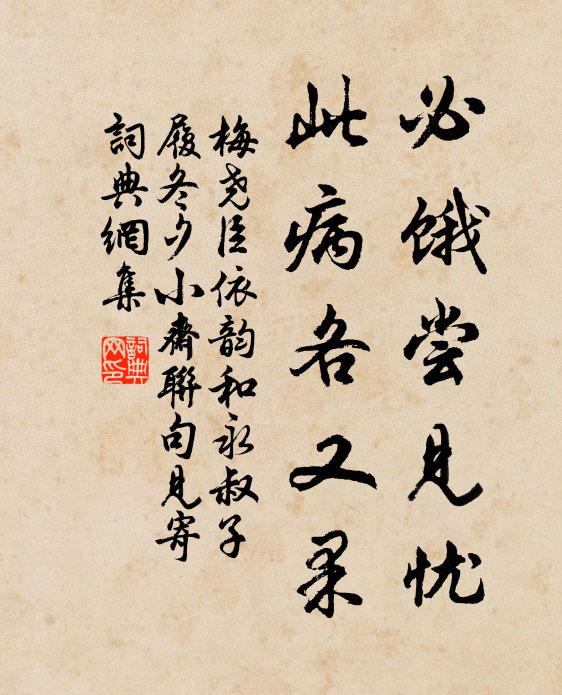 必饿尝见忧
此病各又果
梅尧臣依韵和永叔子
履冬夕小齋聯句見寄
詞典網集
詞典网印